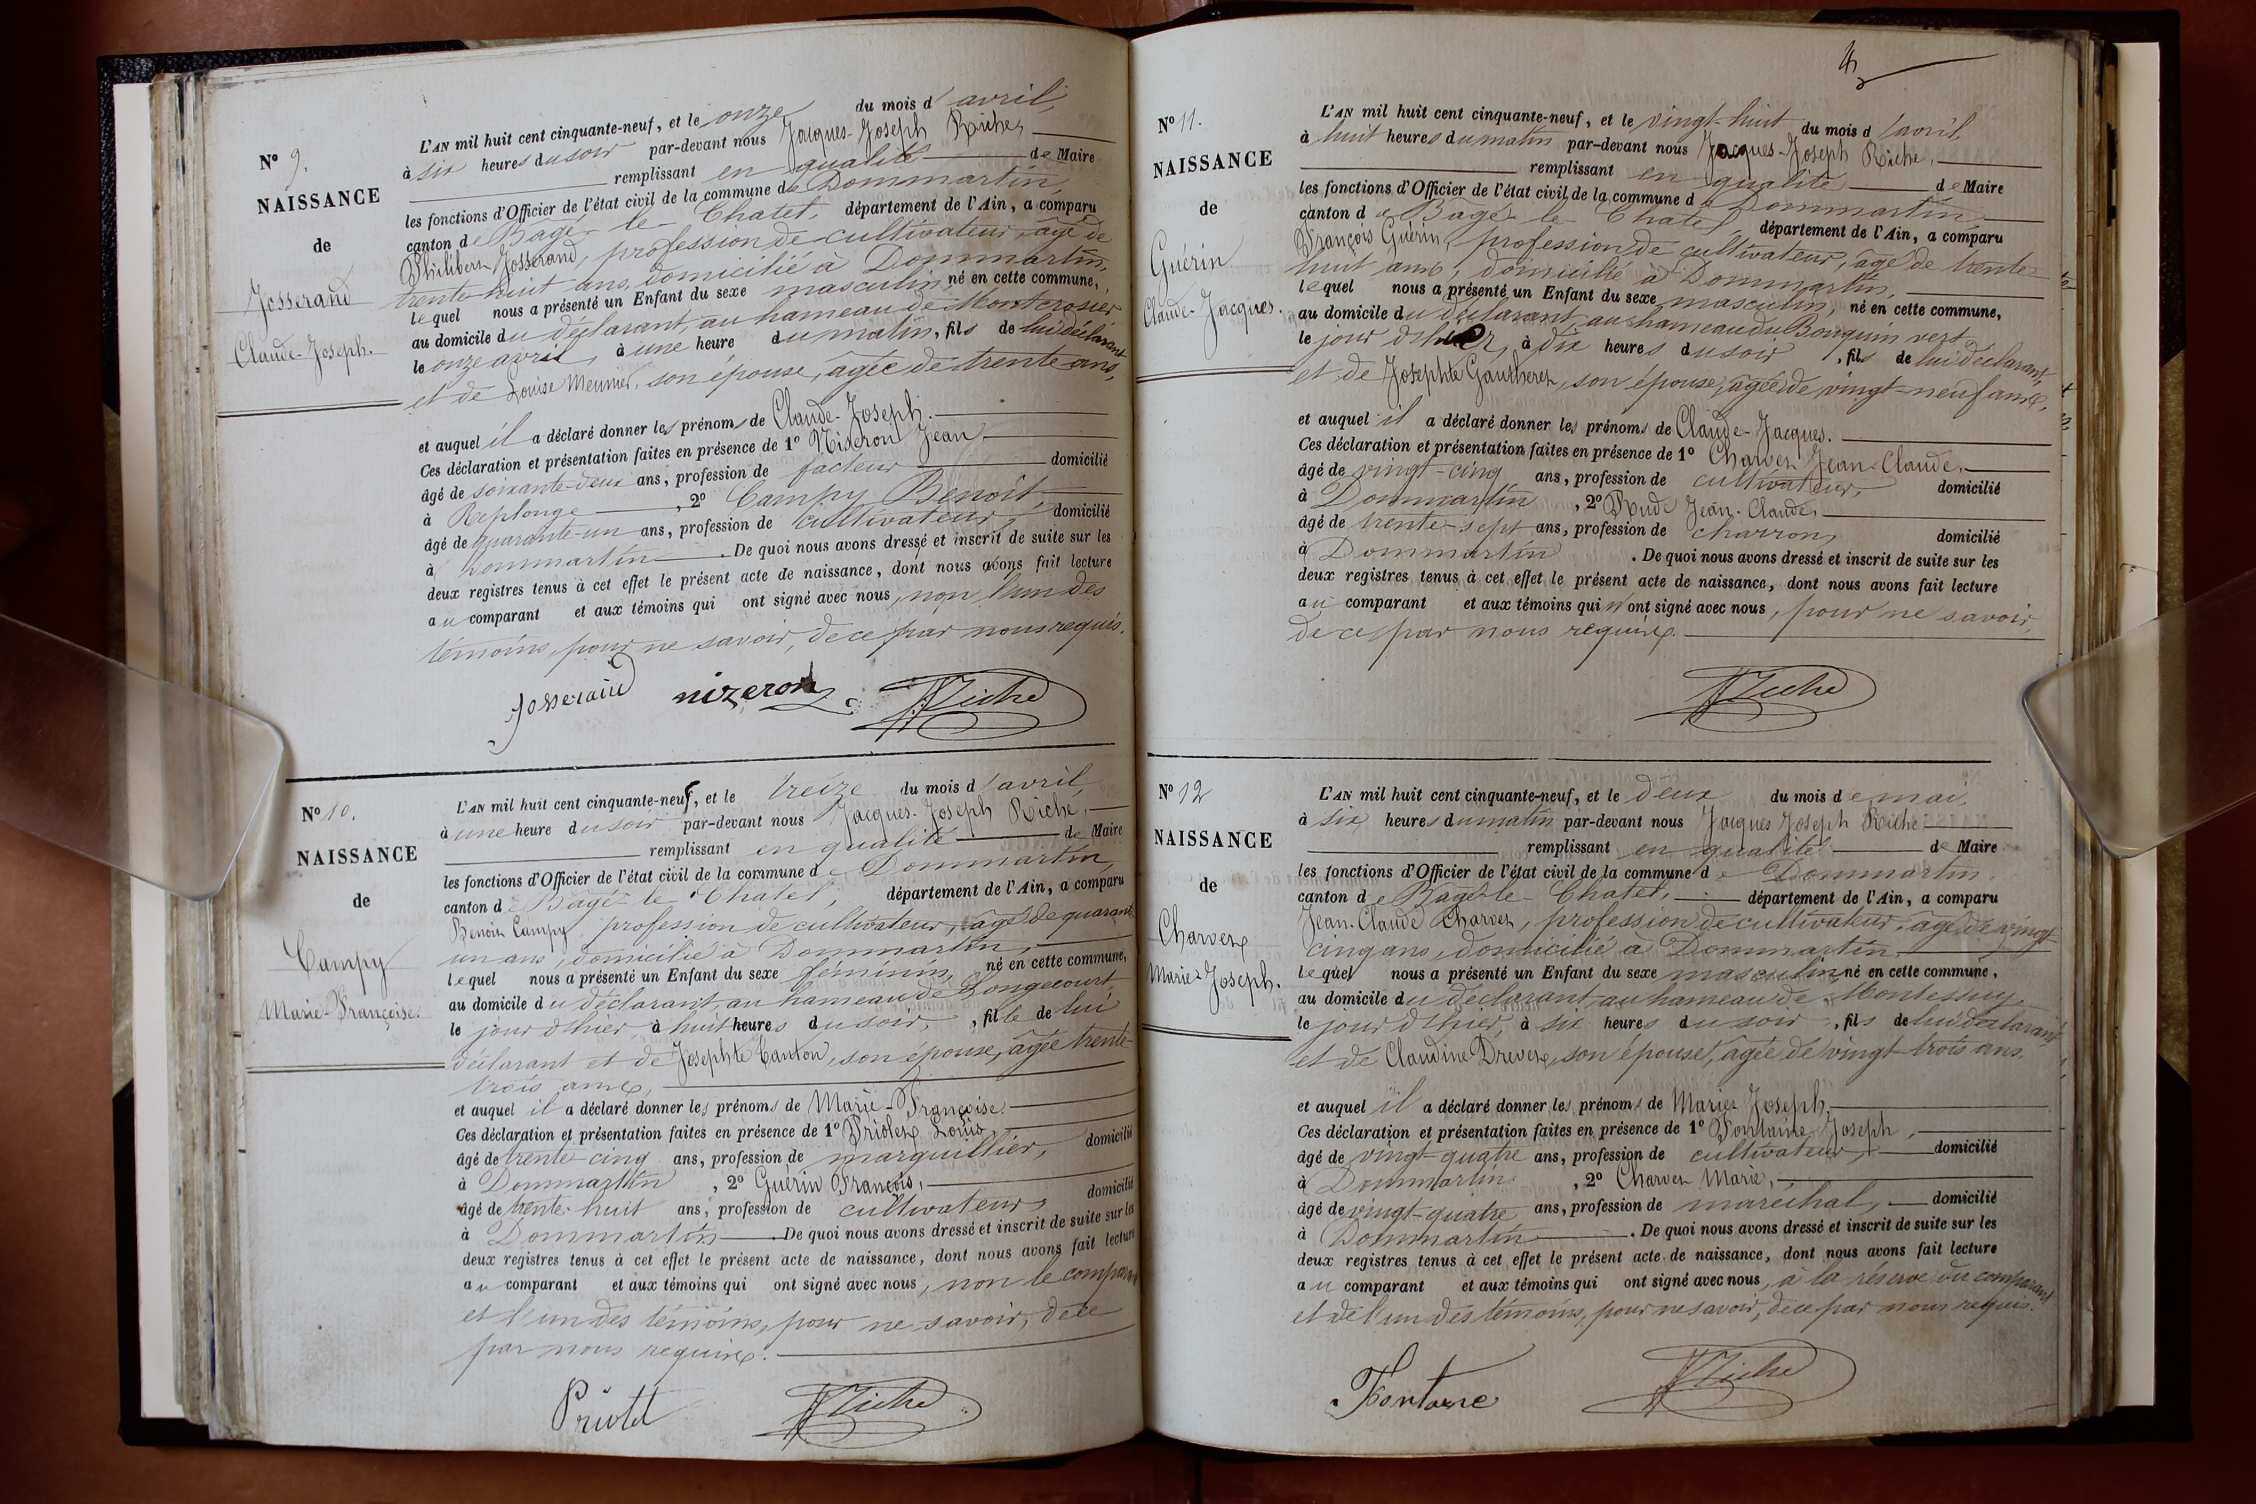 N° 9.
NAISSANCE
de
Josserand
Claude-Joseph.
L'AN mil huit cent cinquante-neuf, et le onze du mois d'avril,
à six heures du soir par-devant nous Jacques-Joseph Riche,
remplissant en qualité de Maire
les fonctions d'Officier de l'état civil de la commune de Dommartin,
canton de Bâgé-le-Chatel, département de l'Ain, a comparu
Philibert Josserand, profession de cultivateur, âgé de
trente-huit ans, domicilié à Dommartin,
lequel nous a présenté un Enfant du sexe masculin, né en cette commune,
au domicile du déclarant, au hameau de Montcrosier
le onze avril, à une heure du matin, fils de lui déclarant
et de Louise Meunier, son épouse, âgée de trente ans,
et auquel il a déclaré donner les prénoms de Claude-Joseph.
Ces déclaration et présentation faites en présence de 1° Niseron Jean
âgé de soixante-deux ans, profession de facteur domicilié
à Replonge, 2° Campy Benoît
âgé de quarante-un ans, profession de cultivateur, domicilié
à Dommartin. De quoi nous avons dressé et inscrit de suite sur les
deux registres tenus à cet effet le présent acte de naissance, dont nous avons fait lecture
au comparant et aux témoins qui ont signé avec nous, non l'un des
témoins, pour ne savoir, de ce par nous requis.
Josseraud nizeron Riche
N° 10.
NAISSANCE
de
Campy
Marie-Françoise.
L'AN mil huit cent cinquante-neuf, et le treize du mois d'avril,
à une heure du soir par-devant nous Jacques-Joseph Riche,
remplissant en qualité de Maire
les fonctions d'Officier de l'état civil de la commune de Dommartin,
canton de Bâgé-le-Chatel, département de l'Ain, a comparu
Benoit Campy profession de cultivateur, âgé de quarante
un ans, domicilié à Dommartin,
lequel nous a présenté un Enfant du sexe féminin, né en cette commune,
au domicile du déclarant, au hameau de Longecourt,
le jour d'hier, à huit heures du soir, fille de lui
déclarant et de Josephte Canton, son épouse, âgée trente-
trois ans,
et auquel il a déclaré donner les prénoms de Marie-Françoise.
Ces déclaration et présentation faites en présence de 1° Priolet Louis,
âgé de trente-cinq ans, profession de marguillier, domicilié
à Dommartin, 2° Guérin François,
âgé de trente-huit ans, profession de cultivateur, domicilié
à Dommartin. De quoi nous avons dressé et inscrit de suite sur les
deux registres tenus à cet effet le présent acte de naissance, dont nous avons fait lecture
au comparant et aux témoins qui ont signé avec nous, non le comparant
et l'un des témoins, pour ne savoir, de ce
par nous requis.
Priolet Riche
4
N° 11.
NAISSANCE
de
Guérin
Claude-Jacques.
L'AN mil huit cent cinquante-neuf, et le vingt-huit du mois d'avril,
à huit heures du matin par-devant nous Jacques-Joseph Riche,
remplissant en qualité de Maire
les fonctions d'Officier de l'état civil de la commune de Dommartin,
canton de Bâgé-le-Chatel, département de l'Ain, a comparu
François Guérin, profession de cultivateur, âgé de trente-
huit ans, domicilié à Dommartin,
lequel nous a présenté un Enfant du sexe masculin, né en cette commune,
au domicile du déclarant, au hameau du Bouquin vert
le jour d'hier, à dix heures du soir, fils de lui déclarant,
et de Josephte Gautheret, son épouse, âgée de vingt-neuf ans,
et auquel il a déclaré donner les prénoms de Claude-Jacques.
Ces déclaration et présentation faites en présence de 1° Charvet Jean-Claude,
âgé de vingt-cinq ans, profession de cultivateur, domicilié
à Dommartin, 2° Rude Jean-Claude,
âgé de trente-sept ans, profession de charron, domicilié
à Dommartin. De quoi nous avons dressé et inscrit de suite sur les
deux registres tenus à cet effet le présent acte de naissance, dont nous avons fait lecture
au comparant et aux témoins qui n'ont signé avec nous, pour ne savoir,
de ce par nous requis.
Riche
N° 12
NAISSANCE
de
Charvet
Marie-Joseph.
L'AN mil huit cent cinquante-neuf, et le deux du mois de mai,
à six heures du matin par-devant nous Jacques Joseph Riche
remplissant en qualité de Maire
les fonctions d'Officier de l'état civil de la commune de Dommartin,
canton de Bâgé-le-Chatel, département de l'Ain, a comparu
Jean-Claude Charvet, profession de cultivateur, âgé de vingt
cinq ans, domicilié à Dommartin
lequel nous a présenté un Enfant du sexe masculin, né en cette commune,
au domicile du déclarant, au hameau de Montessuy
le jour d'hier, à six heures du soir, fils de lui déclarant
et de Claudine Drevet, son épouse, âgée de vingt-trois ans.
et auquel il a déclaré donner les prénoms de Marie-Joseph,
Ces déclaration et présentation faites en présence de 1° Fontaine Joseph,
âgé de vingt-quatre ans, profession de cultivateur, domicilié
à Dommartin, 2° Charvet Marie,
âgé de vingt-quatre ans, profession de maréchal, domicilié
à Dommartin. De quoi nous avons dressé et inscrit de suite sur les
deux registres tenus à cet effet le présent acte de naissance, dont nous avons fait lecture
au comparant et aux témoins qui ont signé avec nous, à la réserve du comparant
et de l'un des témoins, pour ne savoir, de ce par nous requis.
Fontaine Riche